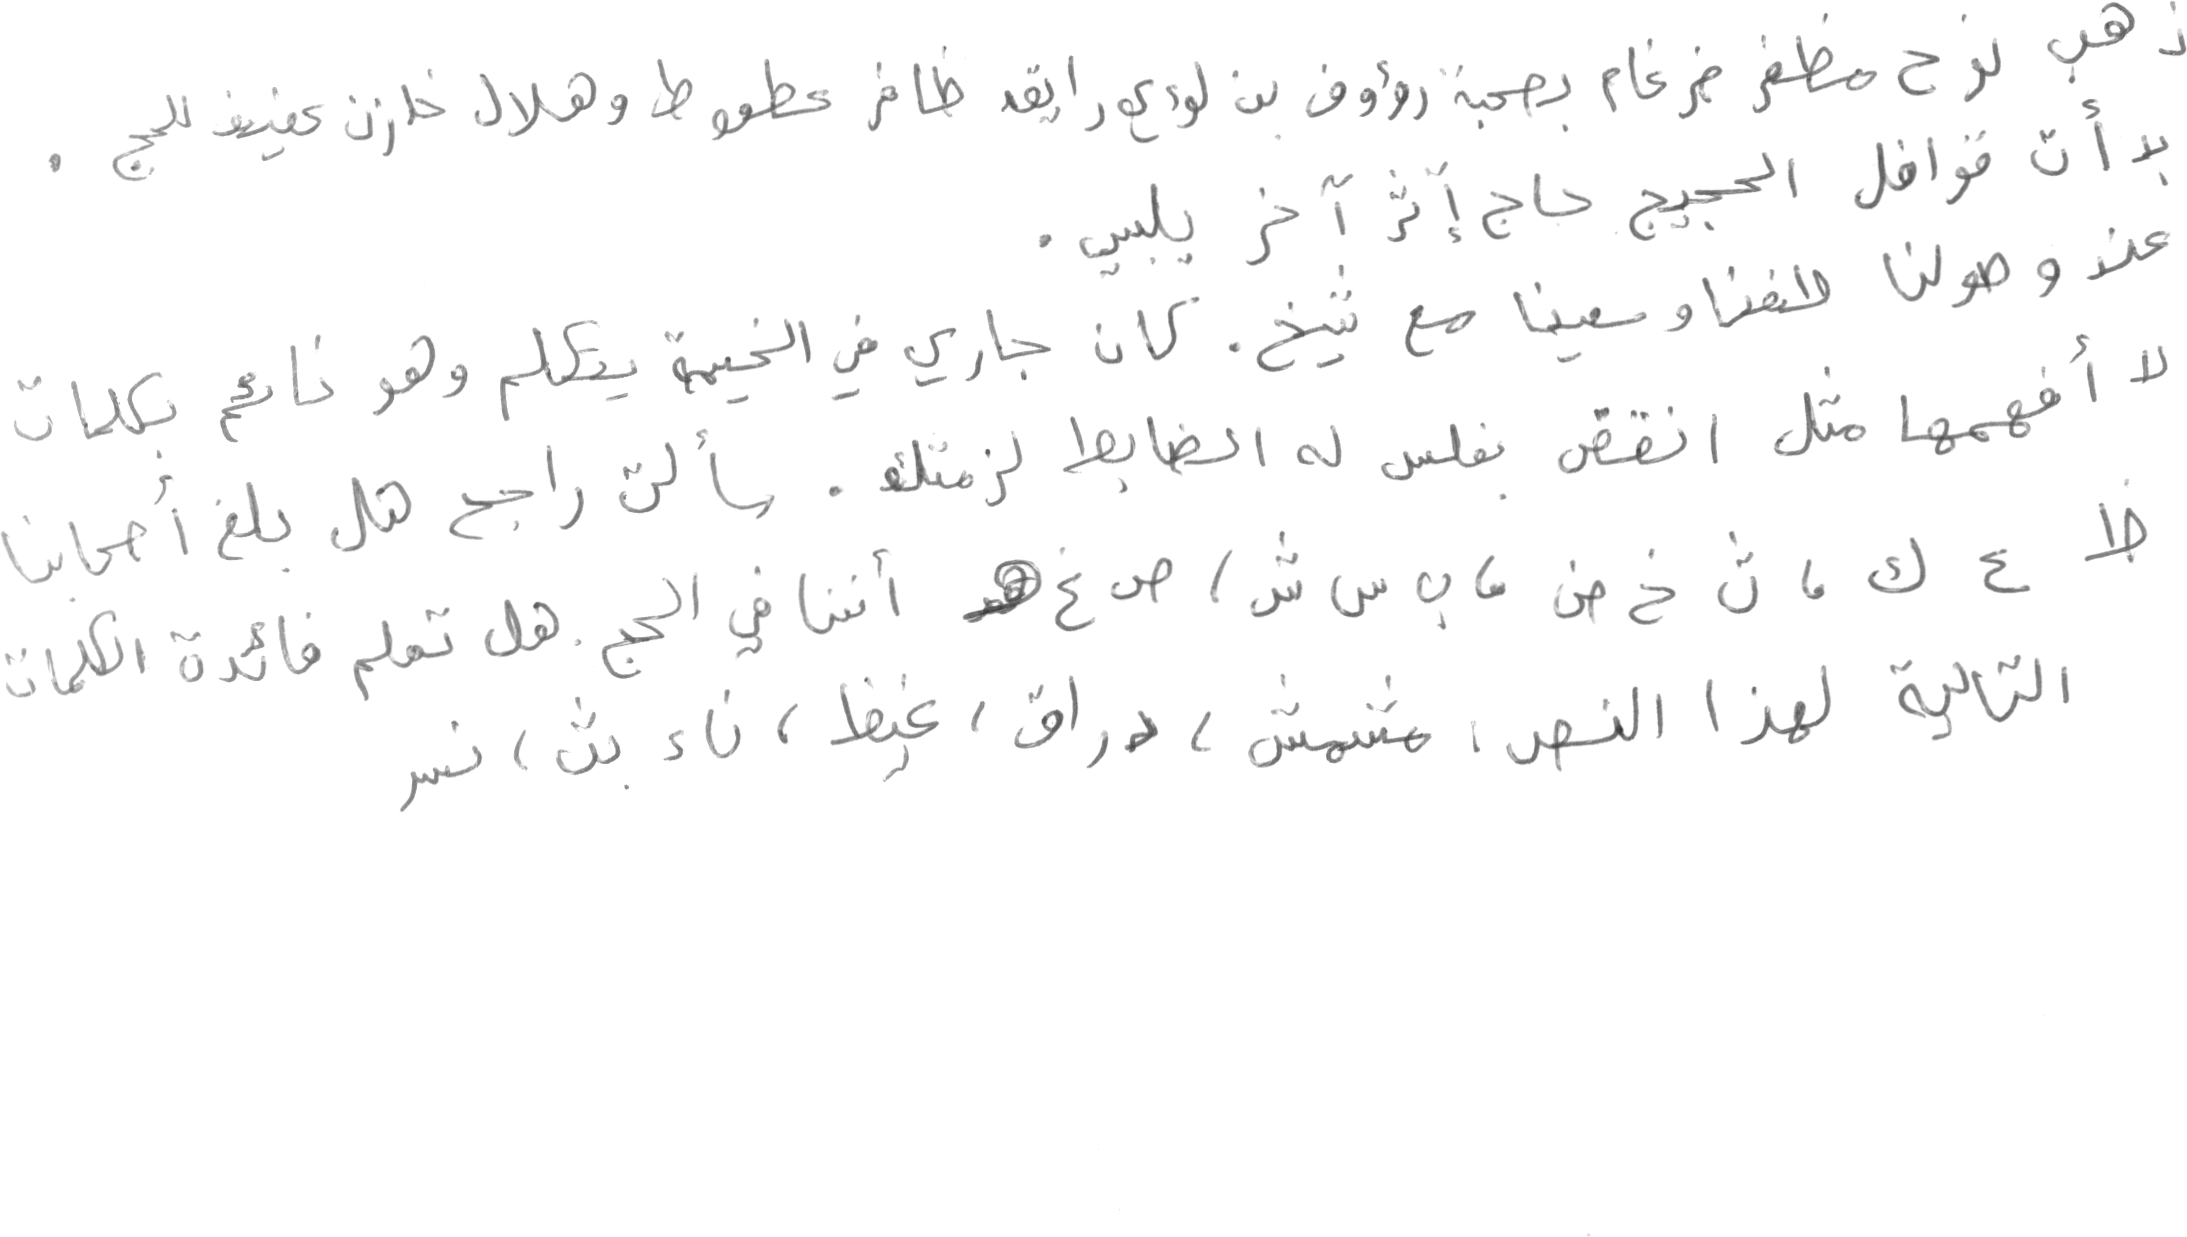 ذهب نوح مظفر ضرغام بصحبة رؤوف بن لؤي رايقد ظافر عطعوط وهلال خازن عفيف للحج .
بدأت قوافل الحجيج حاج إثر آخر يلبي .
عند وصولنا للفنا وسعينا مع شيخ . كان جاري في الخيمة يتكلم وهو نائم بكلمات
لا أفهمها مثل انقض بفلس له الضابط لزمتك . سألت راجح هل بلغ أصحابنا
ظ ع ك ، ث خ ض ، ب س ش ، ص غ أننا في الحج . هل تعلم فائدة الكلمات
التالية لهذا النص ، مشمش ، دراق ، غيظ ، ناء بث ، نسر